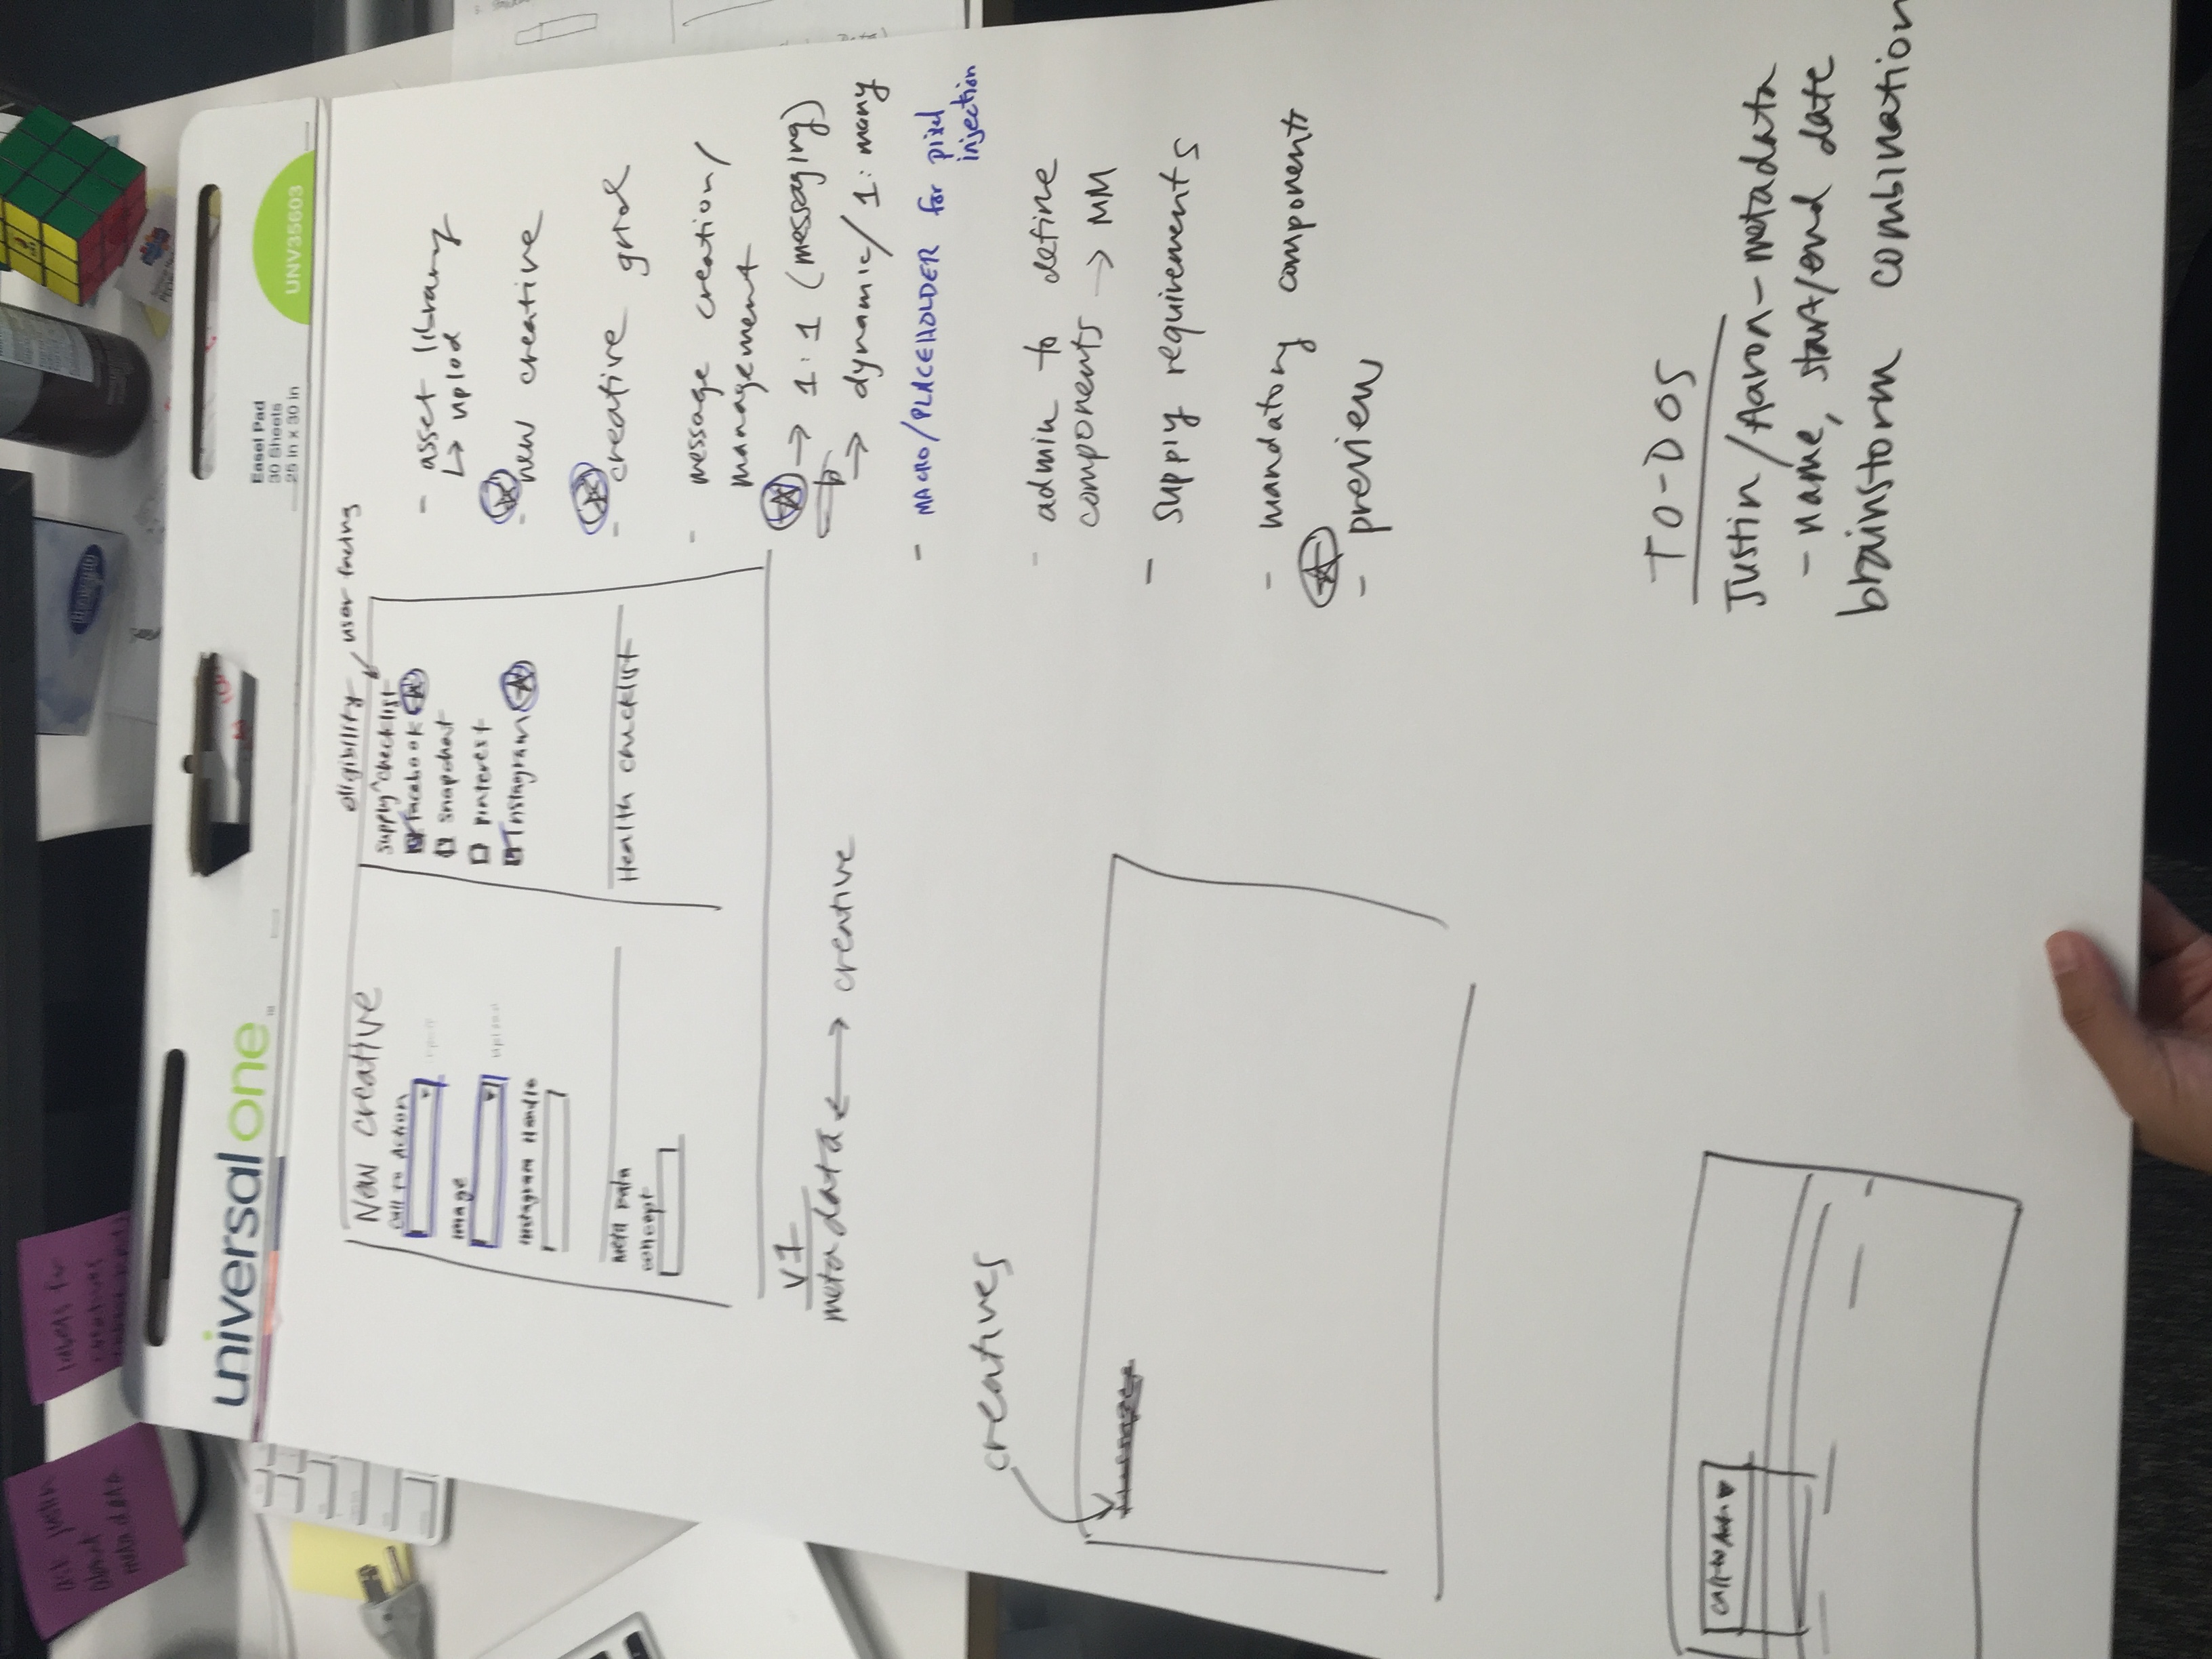 ask justin
about
metadata
labels for
creatives
universal one
Easel Pad
30 Sheets
25 in x 30 in
UNV35603
New creative
Call to Action
image
upload
Instagram Handle
meta data
concept
eligibility
user facing
supply ^ checklist
facebook
snapchat
pinterest
Instagram
Health checklist
v1
metadata ↔ creative
creatives
Call to Action
- asset library
↳ uplod
- new creative
- creative grid
- message creation/
management
→ 1:1 (messaging)
→ dynamic/ 1:many
- MACRO/PLACEHOLDER for pixel
injection
- admin to define
components → MM
- supply requirements
- mandatory components
- preview
TO-DOS
Justin/Aaron-metadata
- name, start/end date
brainstorm combination